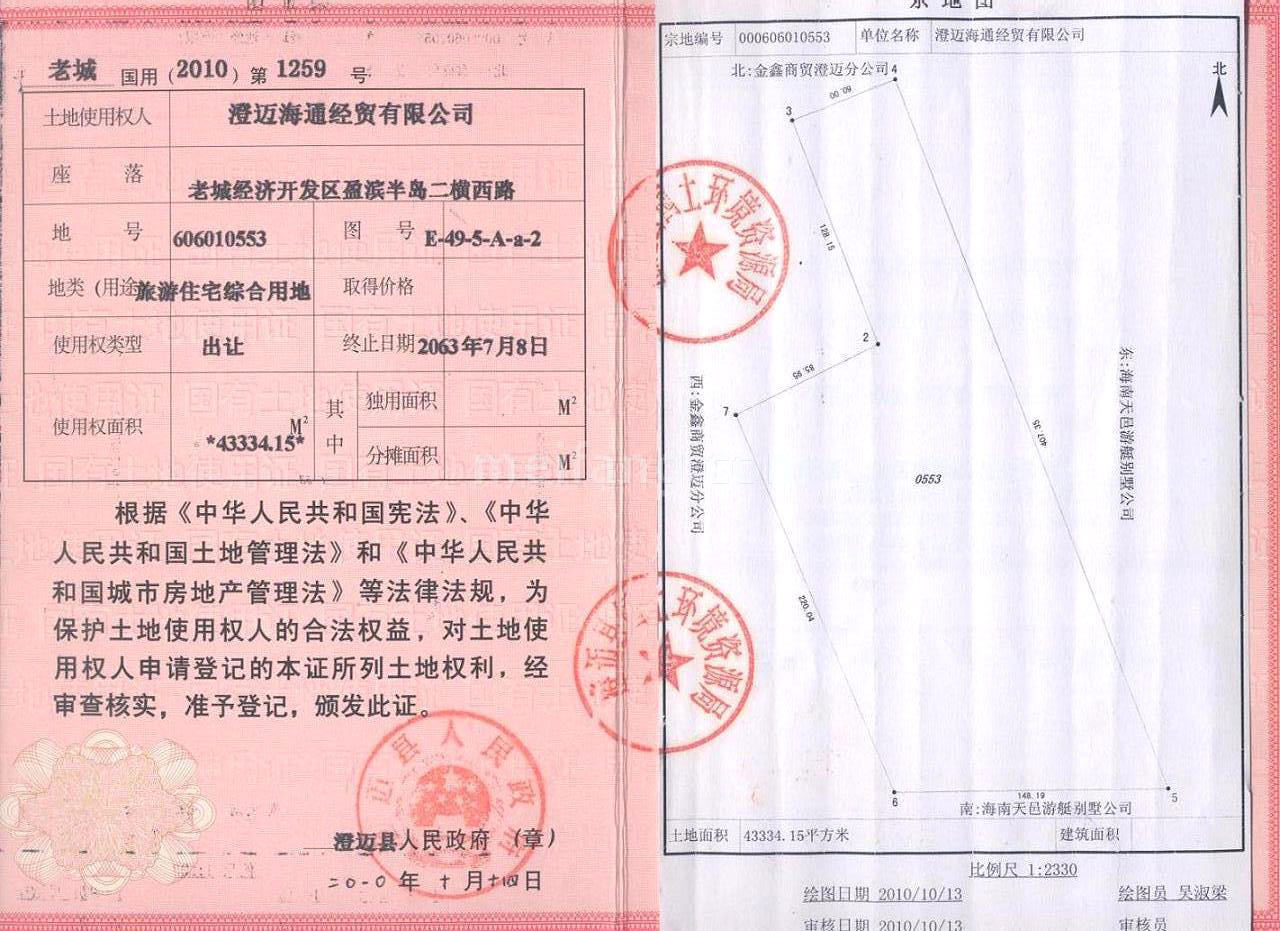 老城 国用(2010)第 1259 号
土地使用权人 澄迈海通经贸有限公司
座 落 老城经济开发区盈滨半岛二横西路
地 号 606010553 图 号 E-49-5-A-a-2
地类(用途 旅游住宅综合用地 取得价格
使用权类型 出让 终止日期 2063年7月8日
使用权面积 *43334.15* M² 其中 独用面积 M²
分摊面积 M²
根据《中华人民共和国宪法》、《中华
人民共和国土地管理法》和《中华人民共
和国城市房地产管理法》等法律法规，为
保护土地使用权人的合法权益，对土地使
用权人申请登记的本证所列土地权利，经
审查核实，准予登记，颁发此证。
迈县人民政府
澄迈县人民政府 (章)
二〇一〇年十月十四日
宗地图
宗地编号 000606010553 单位名称 澄迈海通经贸有限公司
北:金鑫商贸澄迈分公司
北
4
60.00
3
128.15
2
85.95
7
西:金鑫商贸澄迈分公司
407.35
东:海南天邑游艇别墅公司
0553
220.04
6
148.19
5
南:海南天邑游艇别墅公司
土环境资源局
澄迈县 土环境资源局
土地面积 43334.15平方米 建筑面积
比例尺 1:2330
绘图日期 2010/10/13 绘图员 吴淑梁
审核日期 2010/10/13 审核员